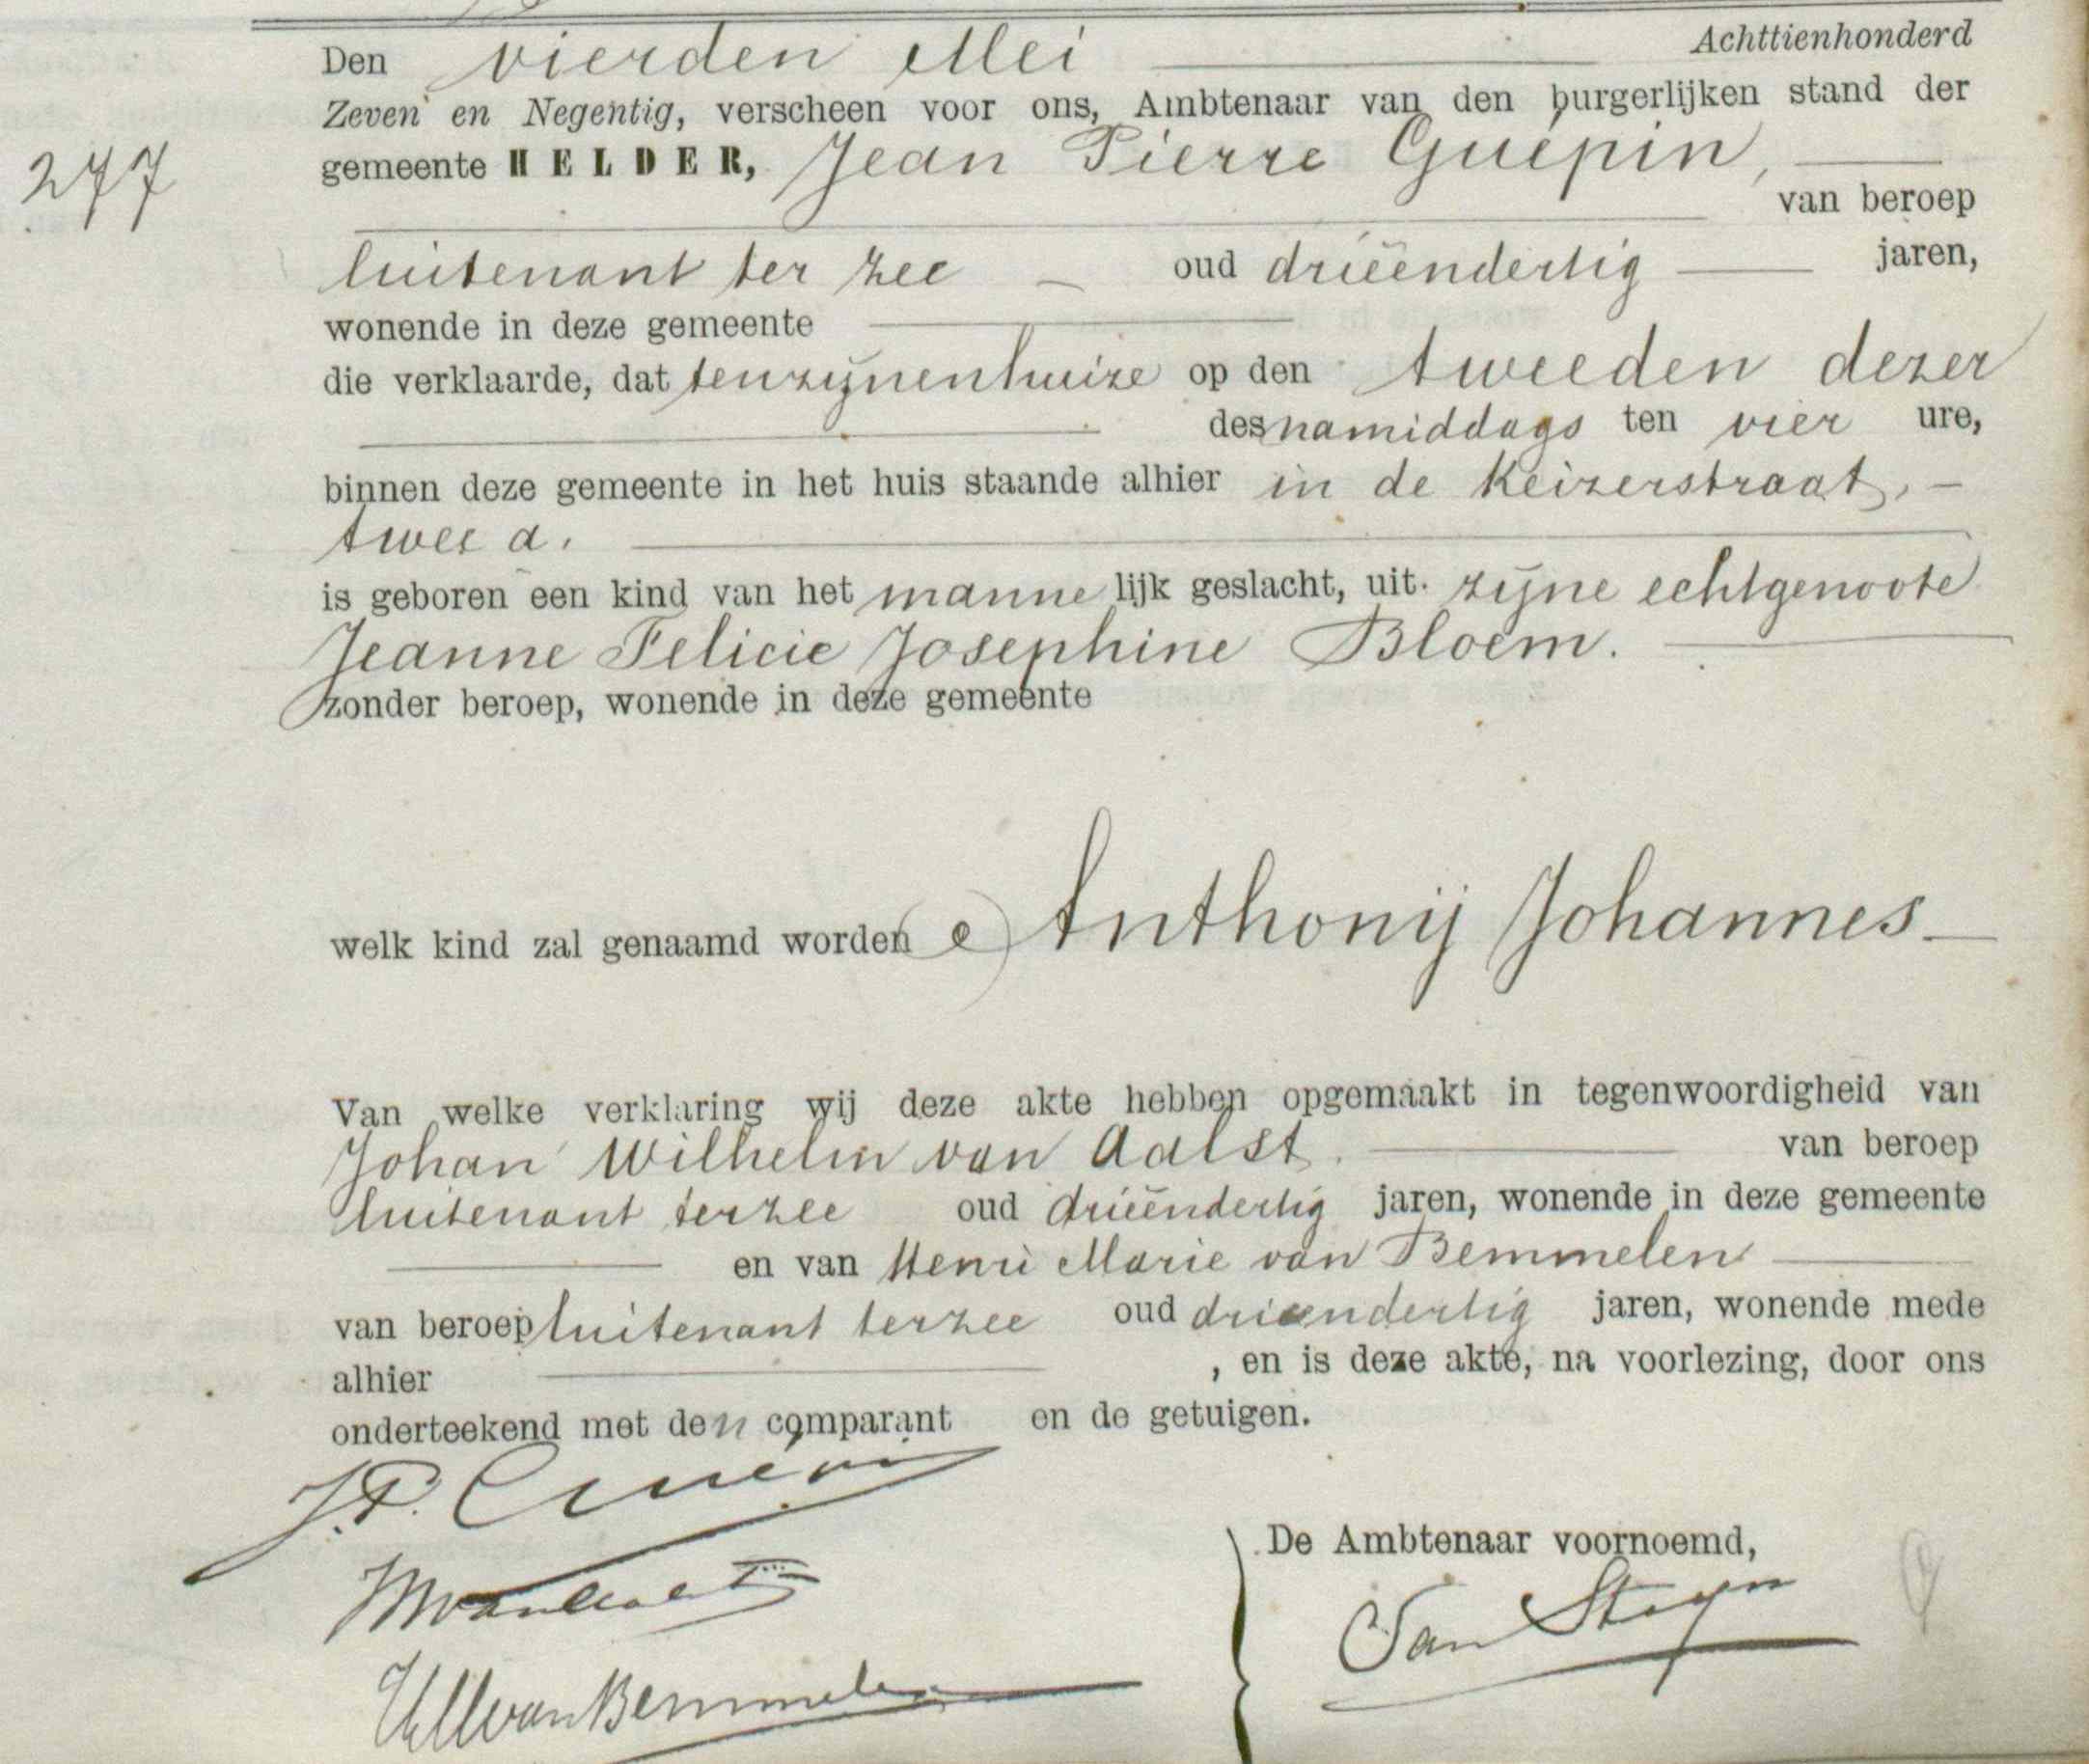 Den vierden Mei Achttienhonderd
Zeven en Negentig, verscheen voor ons, Ambtenaar van den burgerlijken stand der
277
gemeente HELDER, Jean Pierre Guépin,
van beroep
luitenant ter zee oud drieëndertig jaren,
wonende in deze gemeente
die verklaarde, dat tenzijnenhuize op den tweeden dezer
des namiddags ten vier ure,
binnen deze gemeente in het huis staande alhier in de Keizerstraat,
twee a.
is geboren een kind van het mannelijk geslacht, uit zijne echtgenoote
Jeanne Felicie Josephine Bloem.
zonder beroep, wonende in deze gemeente
welk kind zal genaamd worden Anthonij Johannes
Van welke verklaring wij deze akte hebben opgemaakt in tegenwoordigheid van
Johan Wilhelm van Aalst. van beroep
luitenant terzee oud drieëndertig jaren, wonende in deze gemeente
en van Henri Marie van Bemmelen
van beroep luitenant terzee oud drieendertig jaren, wonende mede
alhier , en is deze akte, na voorlezing, door ons
onderteekend met den comparant en de getuigen.
J.P. Guépin
De Ambtenaar voornoemd,
JWvanAalst
Van Steyn
HMvanBemmelen